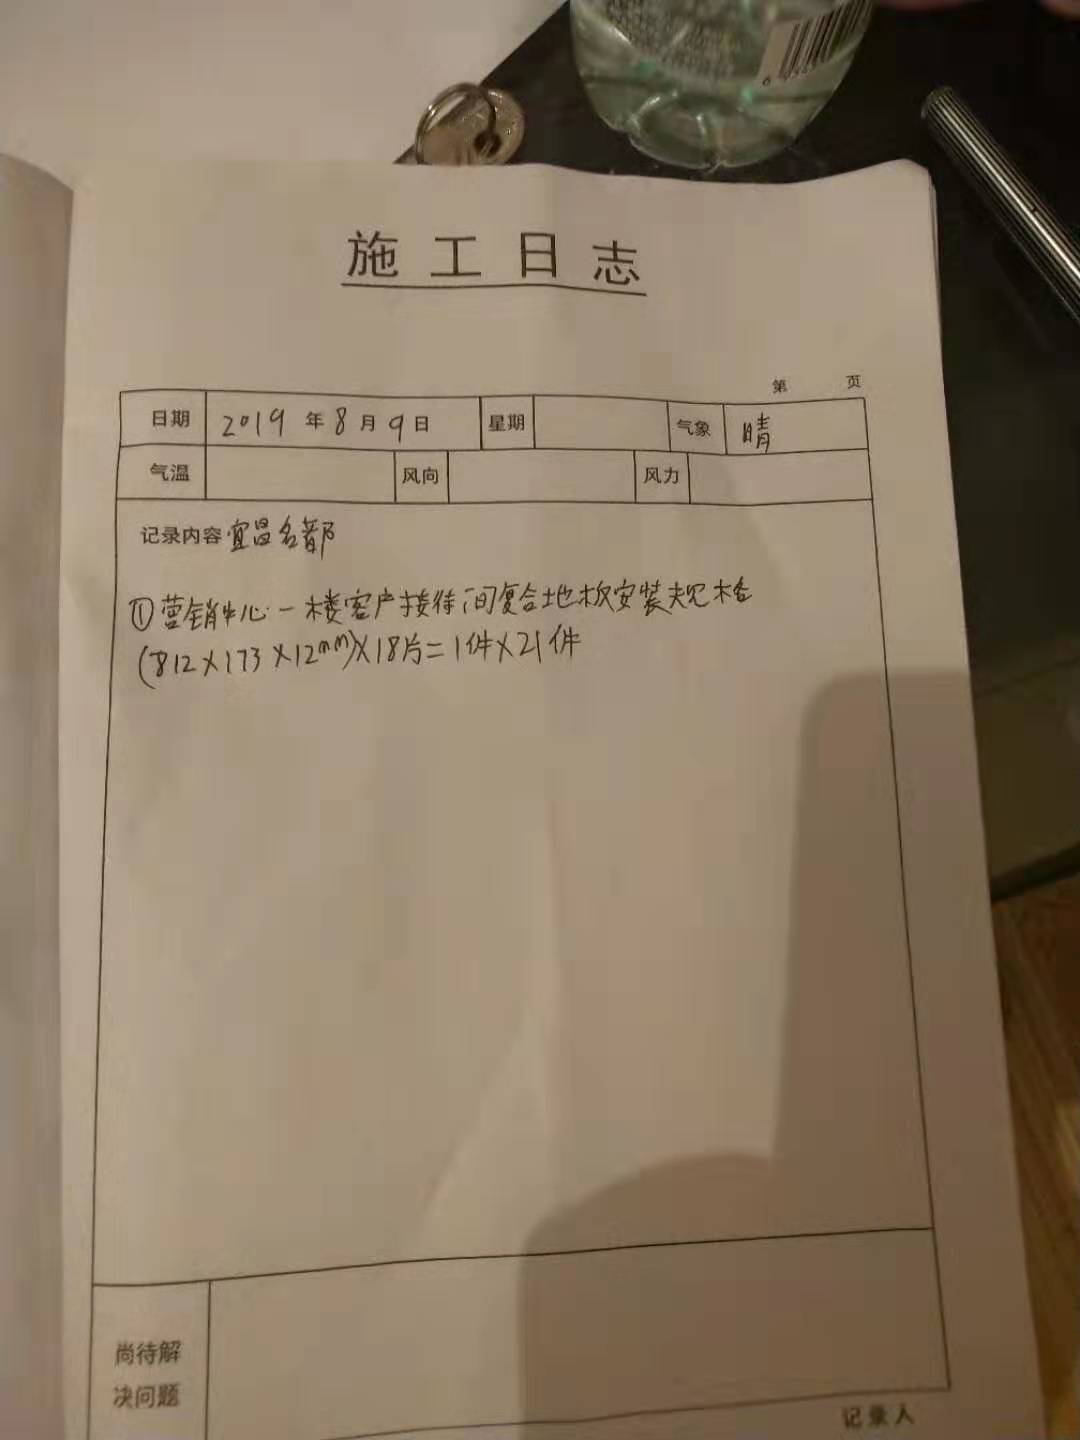 施工日志
第 页
日期 2019 年 8 月 9 日 星期 气象 晴
气温 风向 风力
记录内容 宜昌名都
①营销中心一楼客户接待间复合地板安装规格
(812×173×12mm)×18片=1件×21件
尚待解
决问题
记录人